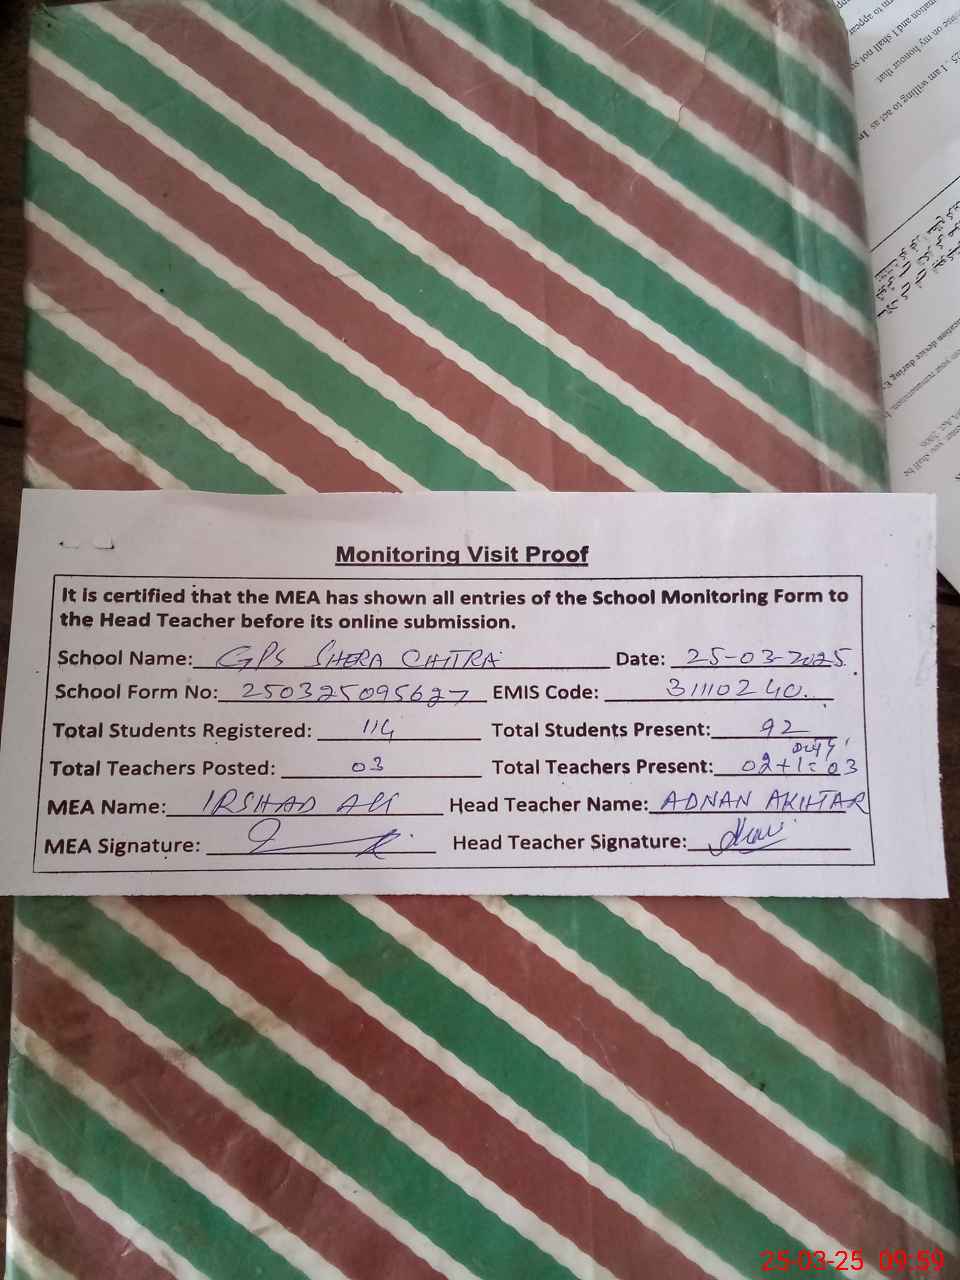 Monitoring Visit Proof
It is certified that the MEA has shown all entries of the School Monitoring Form to
the Head Teacher before its online submission.
School Name: GPS SHERA CHITRA Date: 25-03-2025
School Form No: 250325095627 EMIS Code: 31110240
Total Students Registered: 114 Total Students Present: 92
Total Teachers Posted: 03 Total Teachers Present: 02+1=03
MEA Name: IRSHAD ALI Head Teacher Name: ADNAN AKHTAR
MEA Signature: Head Teacher Signature:
25, I am willing to act as
on my honour that
and I shall not
to appear
25-03-25 09:59